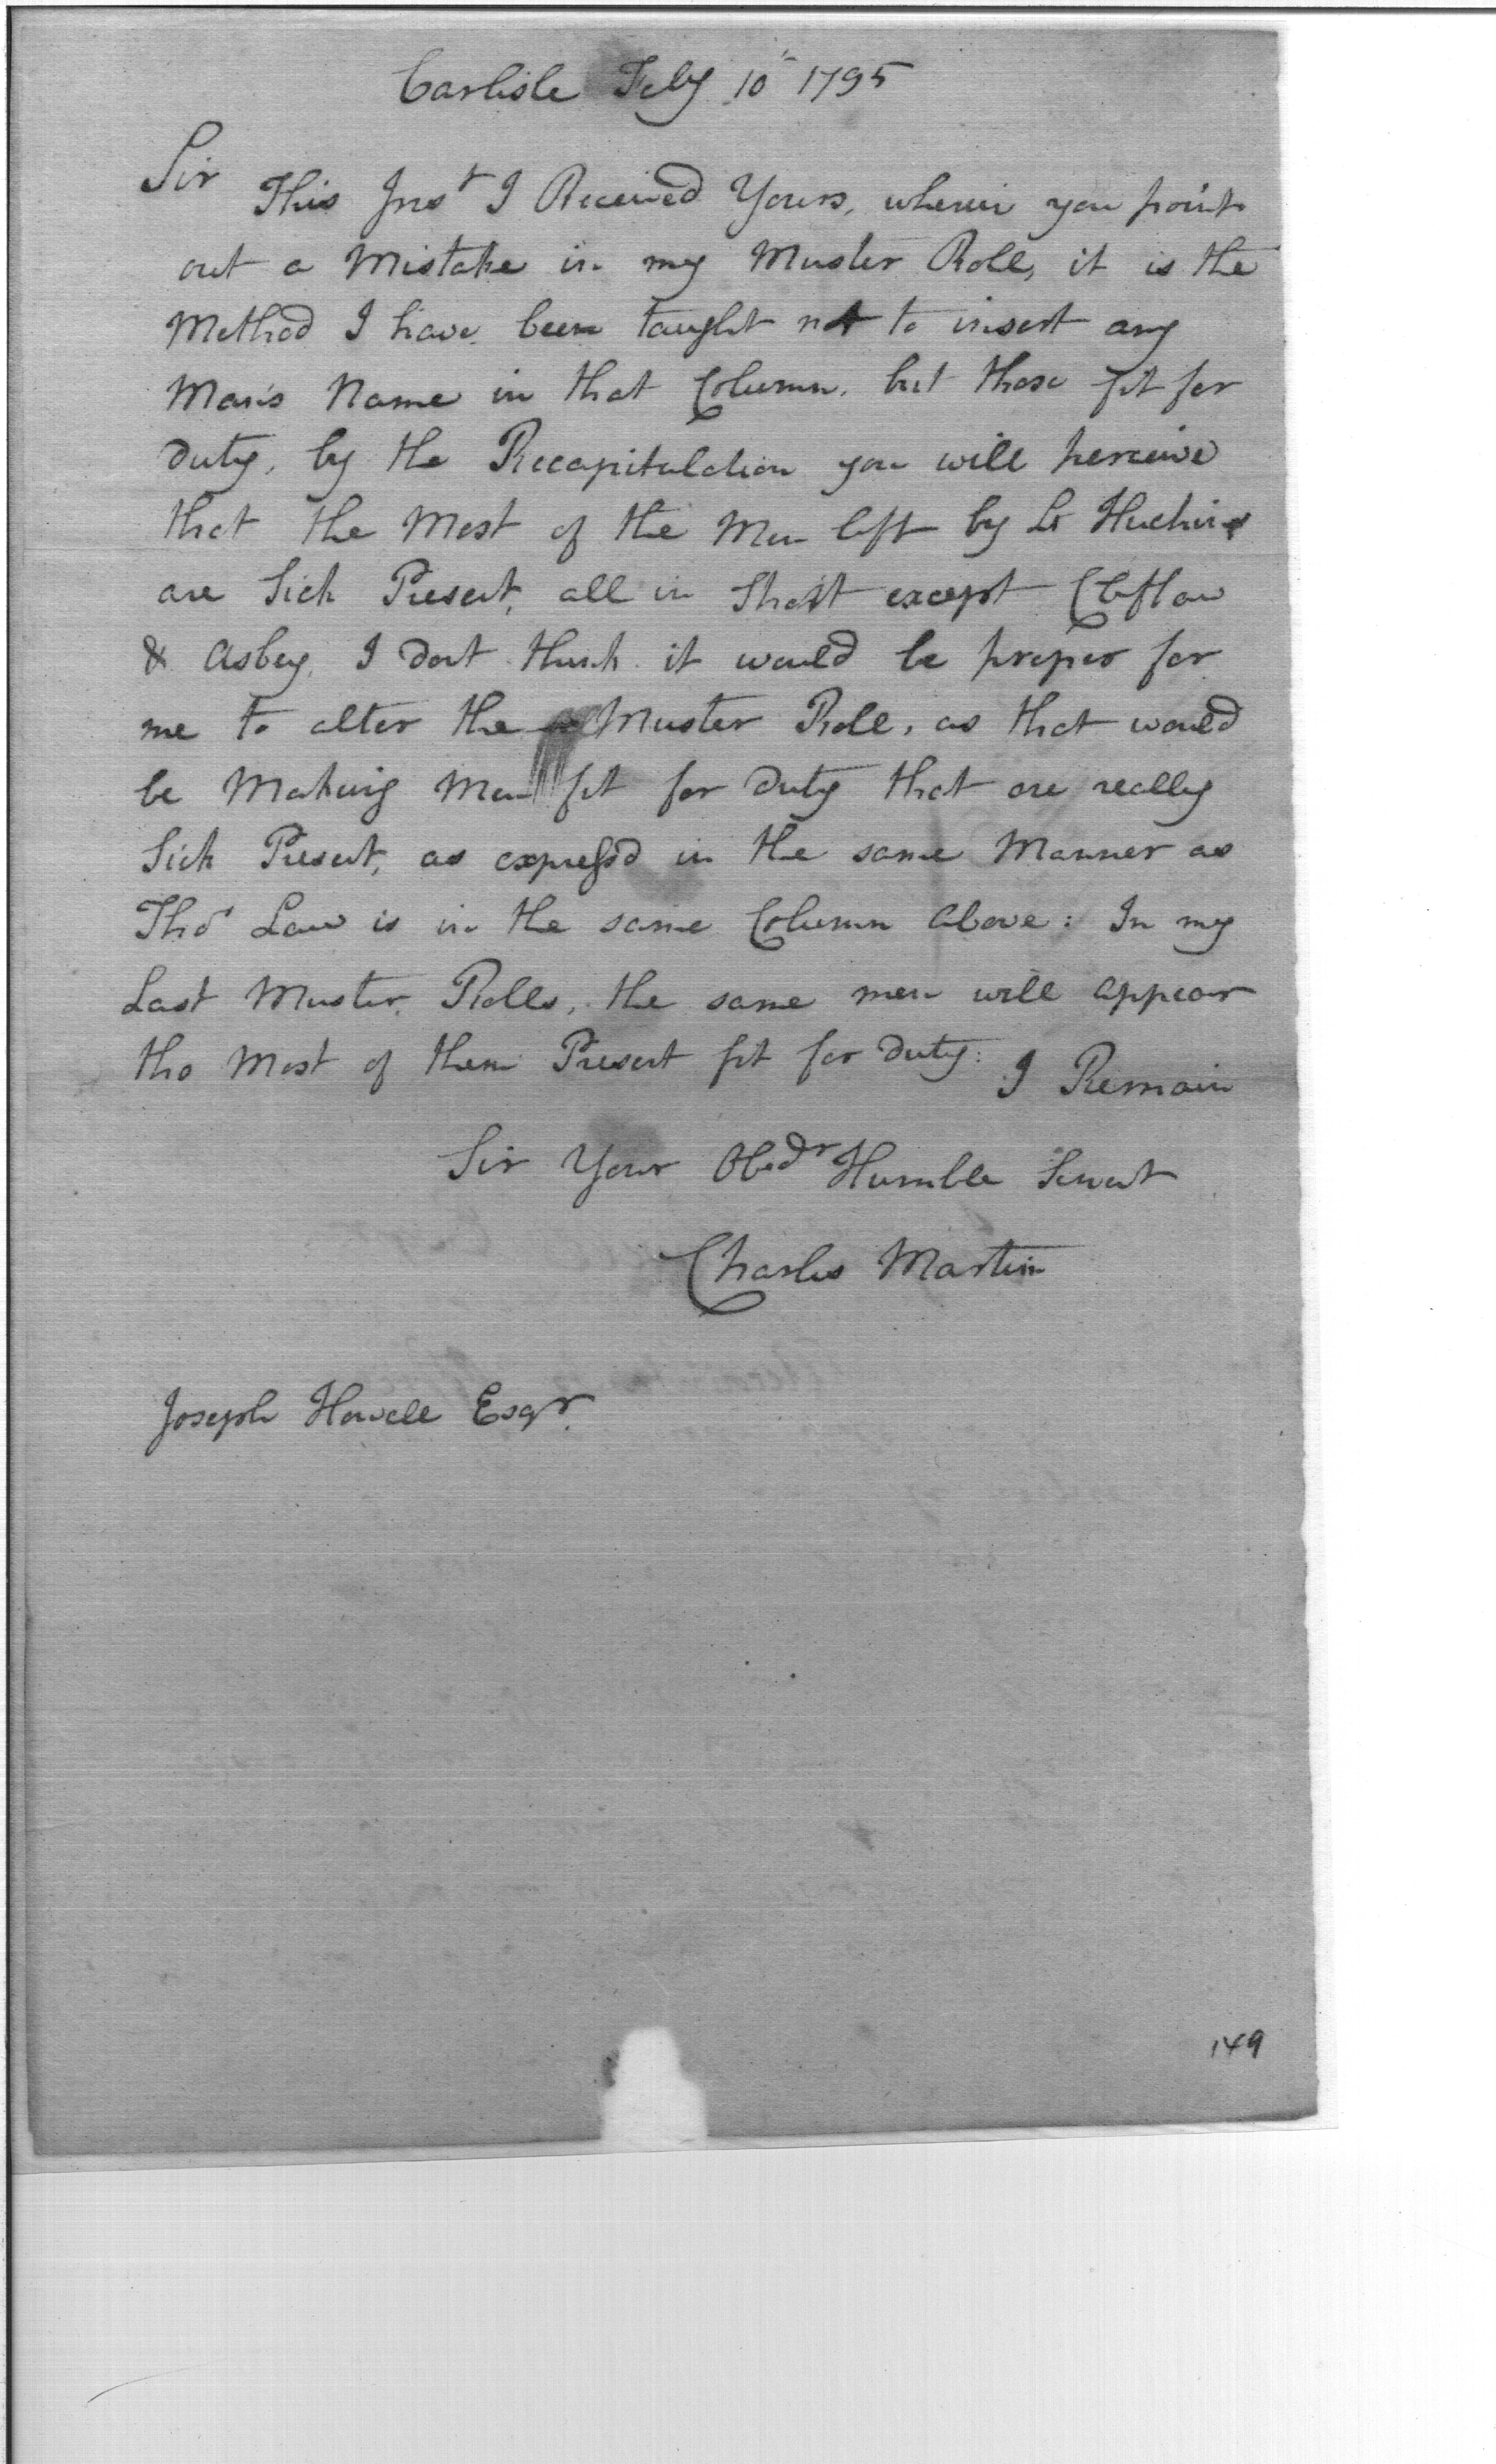 Carlisle Feby 10th 1795
Sir
This Inst I Received Yours, wherein you point
out a Mistake in my Muster Roll, it is the
Method I have been taught not to insert any
Man's Name in that Column, but those fit for
duty, by the Recapitulation you will perceive
that the Most of the Men left by Lt
are Sick Present, all in Short except
& Asbey, I dont think it would be proper for
me to alter the Muster Roll, as that would
be Making Men fit for duty that are really
Sick Present, as express'd in the same Manner as
Thos Law is in the same Column above: In my
Last Muster Rolls, the same men will appear
tho Most of them Present fit for duty: I Remain
Sir Your Obedr Humble Servat
Charles Martin
Joseph Howell Esqr.
149